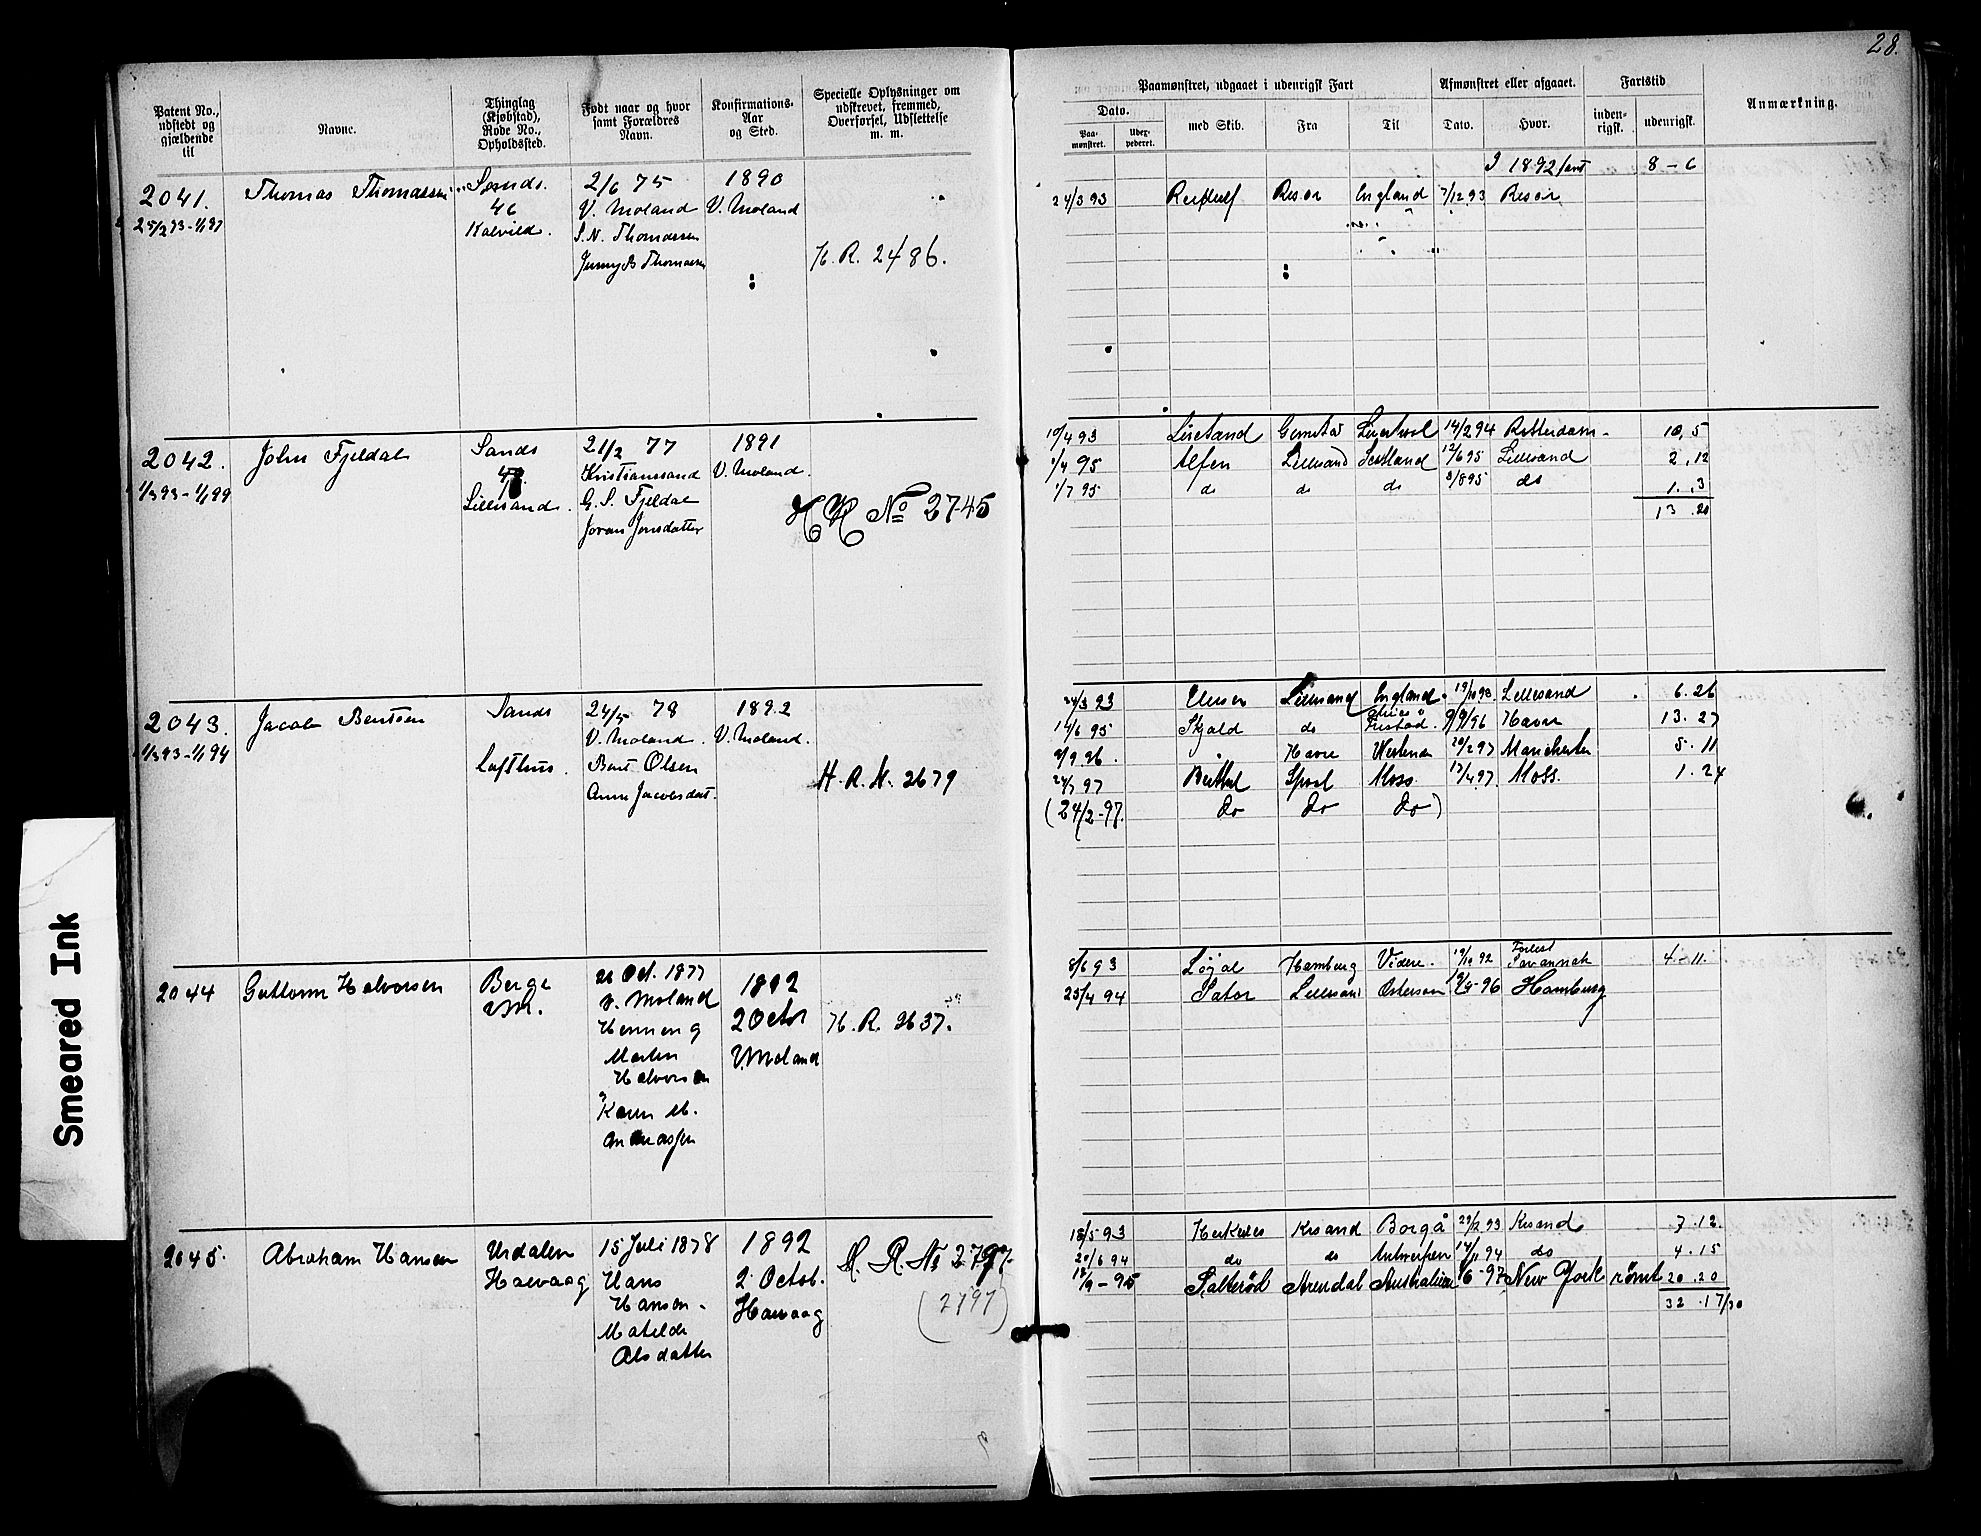 28.
Patent No., udstedt og gjældende til
Navne.
Thinglag (Kjøbstad), Rode No., Opholdssted.
Født naar og hvor samt Forældres Navn.
Konfirmations-Aar og Sted.
Specielle Oplysninger om udskrevet, fremmed, Overførsel, Udslettelse m. m.
Paamønstret, udgaaet i udenrigsk Fart
Dato.
Paa-mønstret.
med Skib.
Fra
Til
Afmønstret eller afgaaet.
Dato.
Hvor.
Fartstid
inden-rigsk.
udenrigsk.
Anmærkning.
2041.
25/2 93-1/1 97
Thomas Thomassen
Sands.
46
2/6 75
V. Moland
S. N. Thomassen
Jenny B Thomassen
1890
V. Moland
H. R. 2486.
I 1892 8-6
24/3 93 Risør England 7/12 93 Risør
2042.
1/3 93-1/1 99
John Fjeldal
Sands
Lillesand.
21/2 77
Kristianssand
G. S. Fjeldal
Joran Jonsdatter
1891
V. Moland.
H R No 2745
10/4 93 14/2 94 Rotterdam 10,5
1/4 95 Alfen Lillesand Scotland 12/6 95 Lillesand 2.12
1/7 95 do do do 3/8 95 do 1.3
13.20
2043.
1/3 93-1/1 94
Jacob Bentsen
Sands
Lofthus.
24/5 78
V. Moland.
Bent Olsen
Anne Jacobsdat.
1892
V. Moland.
H. R. N. 2679
24/3 93 Lillesand England. 19/10 93 Lillesand 6.26
14/6 95 Skjold do 9/9 96 Havre 13.27
9/9 96. " Havre 20/2 97 Manchester 5.11
97 Moss 13/4 97. Moss. 1.24
(24/2-97. do do do)
2044
Guttorm Halvorsen
Berge
VM.
26 Oct. 1877
V. Moland
Henning
Martin
Halvorsen
Karen M.
1892
2 Octbr
V. Moland
H. R. 2637.
8/6 93 Løjal Hamburg Videre. 19/10 92 Savannah 4-11.
25/4 94 Sator Lillesand Hamburg
2045.
Abraham Hansen
Urdalen
Høvaag
15 Juli 1878
Hans
Hansen.
Matilde
Olsdatter
1892
2 Octob.
Høvaag
H. R. No 2797.
(2797)
18/5 93 Herkules Krsand Borgå 29/12 93 Krsand 7.12.
20/6 94 do do Antwerpen 14/11 94 do 4.15
12/9-95 Salterød Arendal Australien /6-97 New York rømt 20.20
32.17/30
Smeared Ink